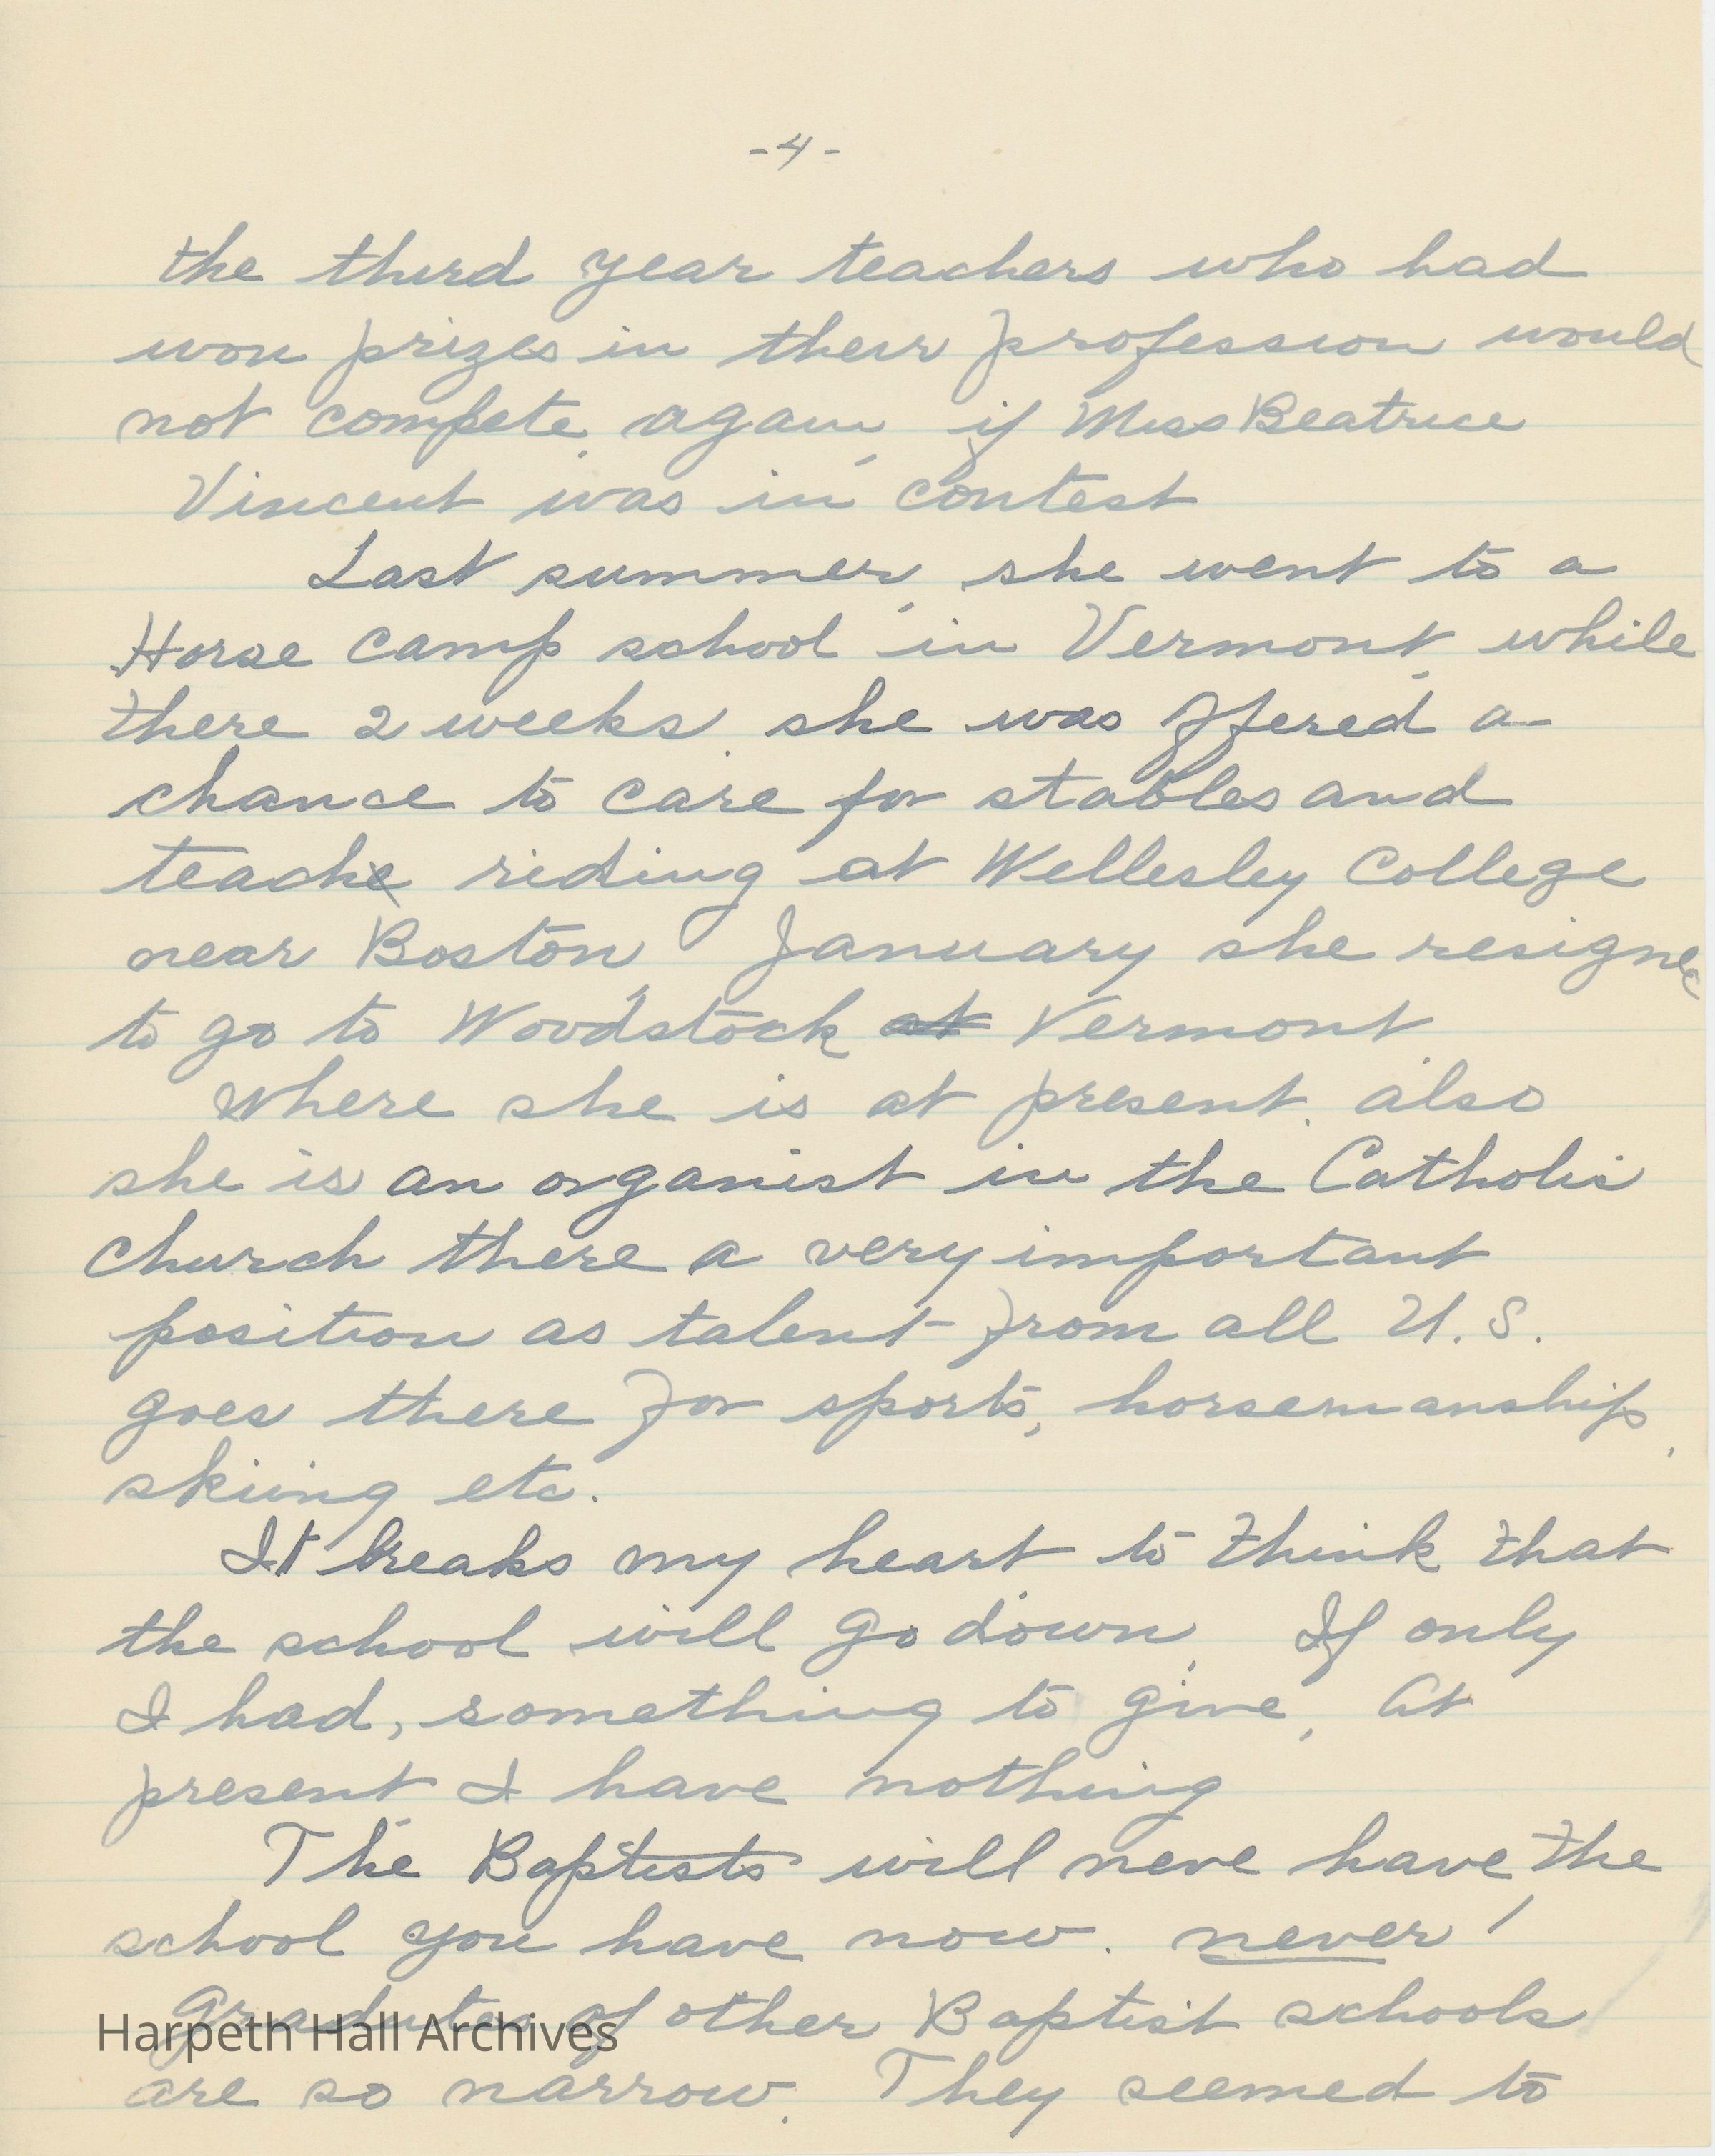 -4-
the third year teachers who had
won prizes in their profession would
not compete again, if Miss Beatrice
Vincent was in contest
Last summer, she went to a
Horse camp school in Vermont, while
there 2 weeks. she was offered a
chance to care for stables and
teach riding at Wellesley College
near Boston, January she resigned
to go to Woodstock at Vermont.
Where she is at present. also
she is an organist in the Catholic
Church there a very important
position as talent from all U.S.
goes there for sports, horsemanship,
skiing etc.
It breaks my heart to think that
the school will go down. If only
I had, something to give, At
present I have nothing
The Baptists will neve have the
school you have now. never!
Graduates of other Baptist schools
Harpeth Hall Archives
are so narrow. They seemed to